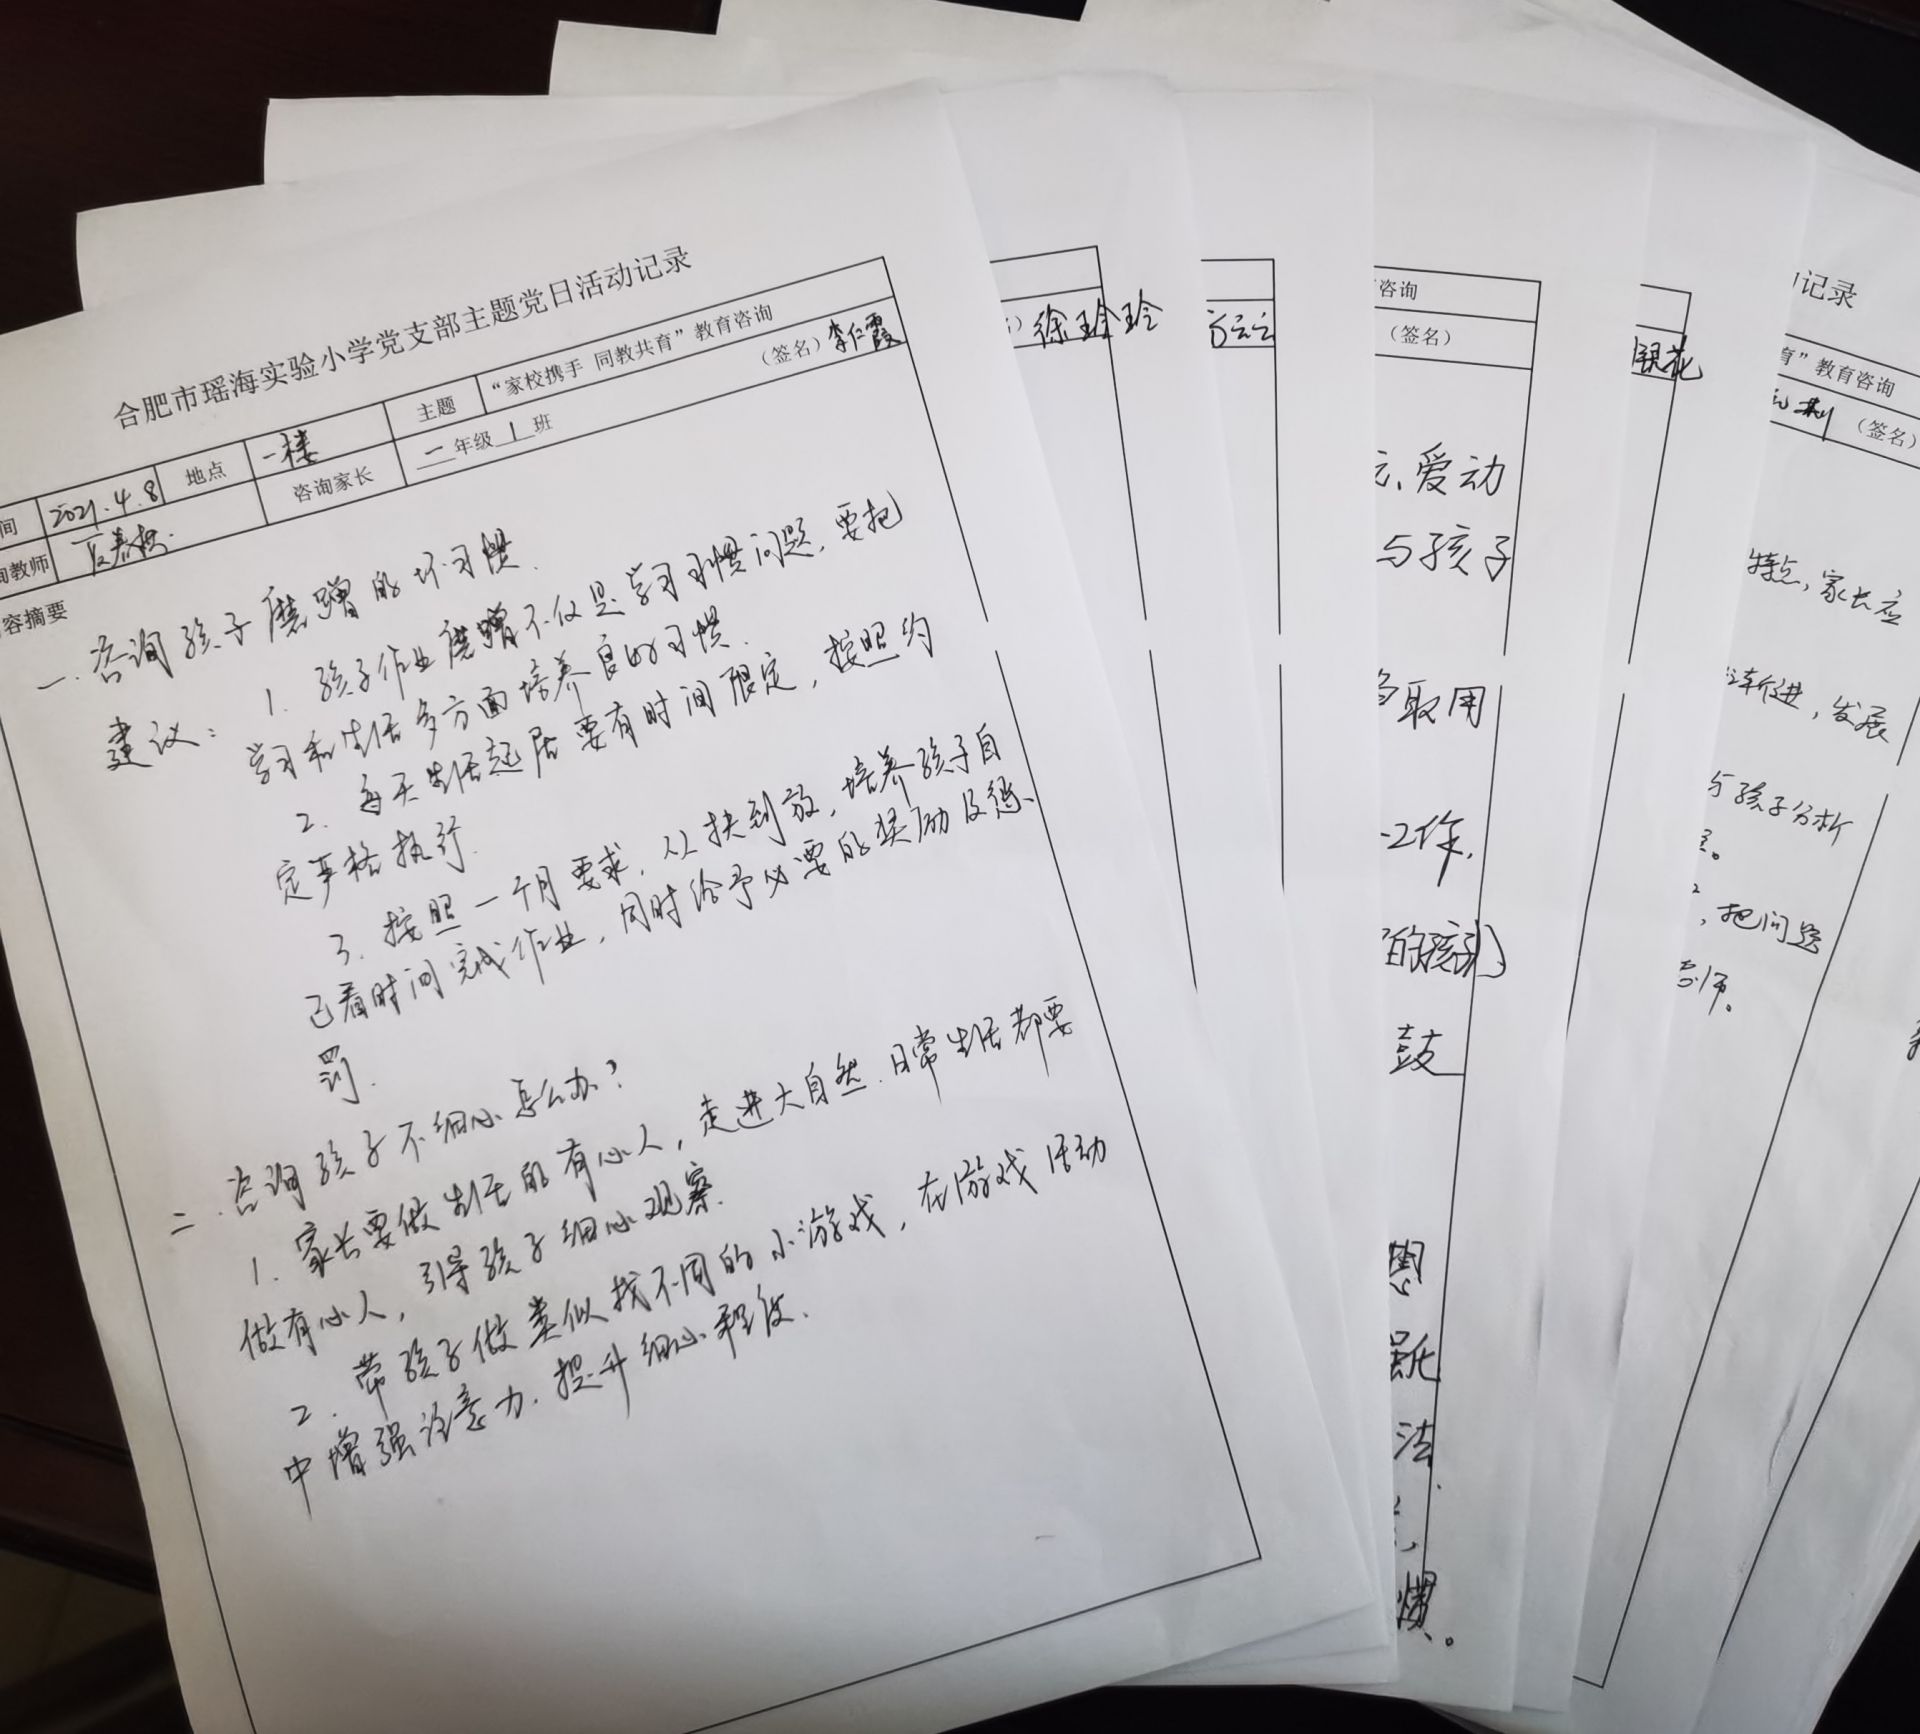 合肥市瑶海实验小学党支部主题党日活动记录
间 2021.4.8 地点 一楼 主题 “家校携手 同教共育”教育咨询
询教师 咨询家长 一年级 1 班 （签名）李仁霞
容摘要
一.咨询孩子磨蹭的坏习惯.
建议： 1. 孩子作业磨蹭不仅是学习习惯问题，要把
学习和生活多方面培养良好习惯.
2. 每天生活起居要有时间限定，按照约
定严格执行.
3. 按照一个月要求，从扶到放，培养孩子自
己看时间完成作业，同时给予必要的奖励及惩
罚.
二.咨询孩子不细心怎么办？
1. 家长要做生活的有心人，走进大自然.日常生活都要
做有心人，引导孩子细心观察.
2. 带孩子做类似找不同的小游戏，在游戏活动
中增强注意力.提升细心程度.
）徐玲玲
咨询
（签名）
、爱动
与孩子
取用
工作，
的孩子
鼓
法
惯。
银花
记录
育”教育咨询
（签名）
特点，家长应
渐进，发展
与孩子分析
，把问题